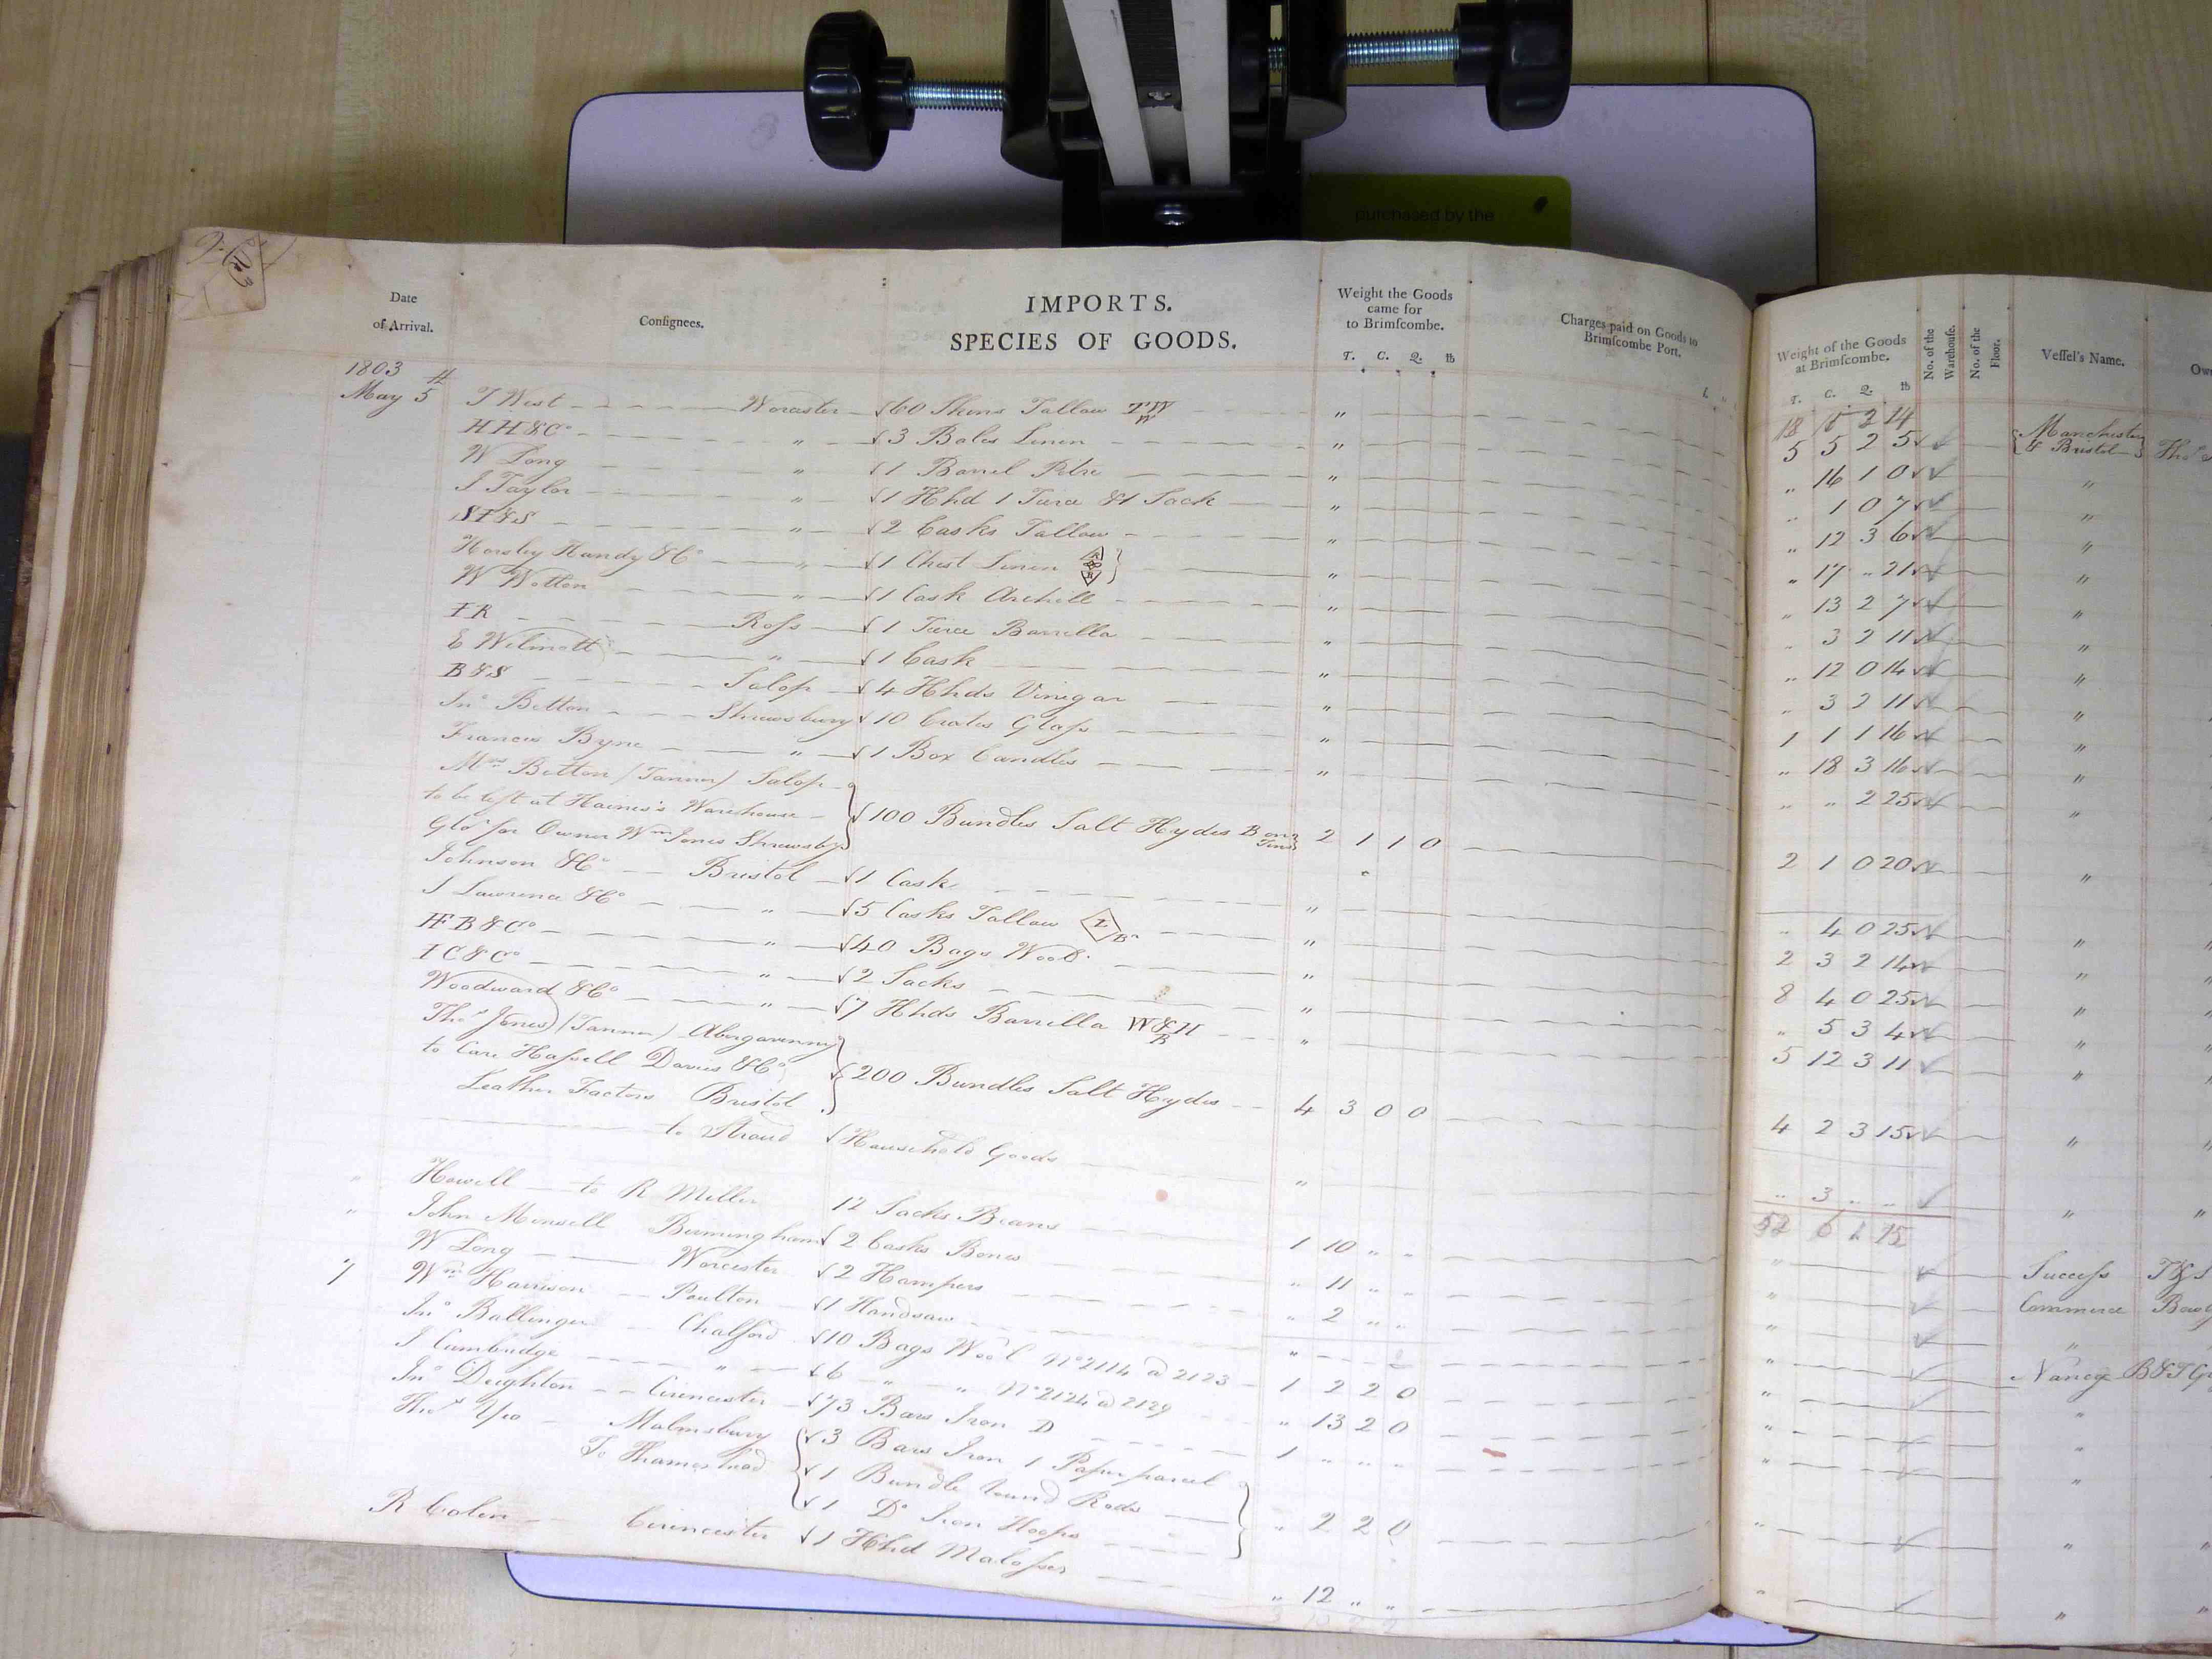 purchased by the
Date of Arrival. Consignees. IMPORTS. SPECIES OF GOODS. Weight the Goods came for to Brimscombe. T. C. Q. lb Charges paid on Goods to Brimscombe Port. Weight of the Goods at Brimscombe. T. C. Q. lb No. of the Warehouse. No. of the Floor. Vessel's Name.
1803
18 15 2 14
May 5th T West Worcester 60 Skins Tallow TW W " 5 5 2 5 Manchester & Bristol
HH&Co " 3 Bales Linen " " 16 1 0 "
W Long " 1 Barrel Petre " " 1 0 7 "
J Taylor " 1 Hhd 1 Tierce & 1 Sack " " 12 3 6 "
ST&S " 2 Casks Tallow " " 17 " 21 "
Horsby Handy & Co " 1 Chest Linen " " 13 2 7 "
W Wotton " 1 Cask Archill " " 3 2 11 "
IR Ross 1 Tierce Barrilla " " 12 0 14 "
E Wilmott " 1 Cask " " 3 2 11 "
B&S Salop 4 Hhds Vinegar " 1 1 1 16 "
Jno Betton Shrewsbury 10 Crates Glass " " 18 3 16 "
Francis Byne " 1 Box Candles " " " 2 25 "
Mrs Betton (Tanner) Salop
to be left at Haines's Warehouse 100 Bundles Salt Hydes 2 1 1 0 2 1 0 20 "
Glosr for Owner Wm Jones Shrewsby
Johnson & Co Bristol 1 Cask " " 4 0 25 "
J Lawrence & Co " 5 Casks Tallow " 2 3 2 14 "
HFB&Co " 40 Bags Wool " 8 4 0 25 "
IC&Co " 2 Sacks " " 5 3 4 "
Woodward & Co " 7 Hhds Barrilla W&H B " 5 12 3 11 "
Thos Jones (Tanner) Abergavenny
to Care Hassell Davies & Co 200 Bundles Salt Hydes 4 3 0 0 4 2 3 15 "
Leather Factors Bristol
to Stroud Household Goods " " 3 " " "
52 6 1 15
" Howell to R Miller 12 Sacks Beans 1 10 " " " Success
" John Monsell Birmingham 2 Casks Bones " 11 " " " Commerce
W Long Worcester 2 Hampers " 2 " " " "
7 Wm Harrison Poulton 1 Handsaw " " Nancy
Jno Ballinger Chalford 10 Bags Wool No 2114 @ 2123 1 2 2 0 " "
J Cumbridge " 6 " " No 2124 @ 2129 " 13 2 0 " "
Jno Deighton Cirencester 73 Bars Iron D 1 " " " " "
Thos Yeo Malmsbury 3 Bars Iron 1 Paper parcel
To Thames head 1 Bundle round Rods " 2 2 0 " "
1 Do Iron Hoops
R Colen Cirencester 1 Hhd Molosses " 12 " " " "